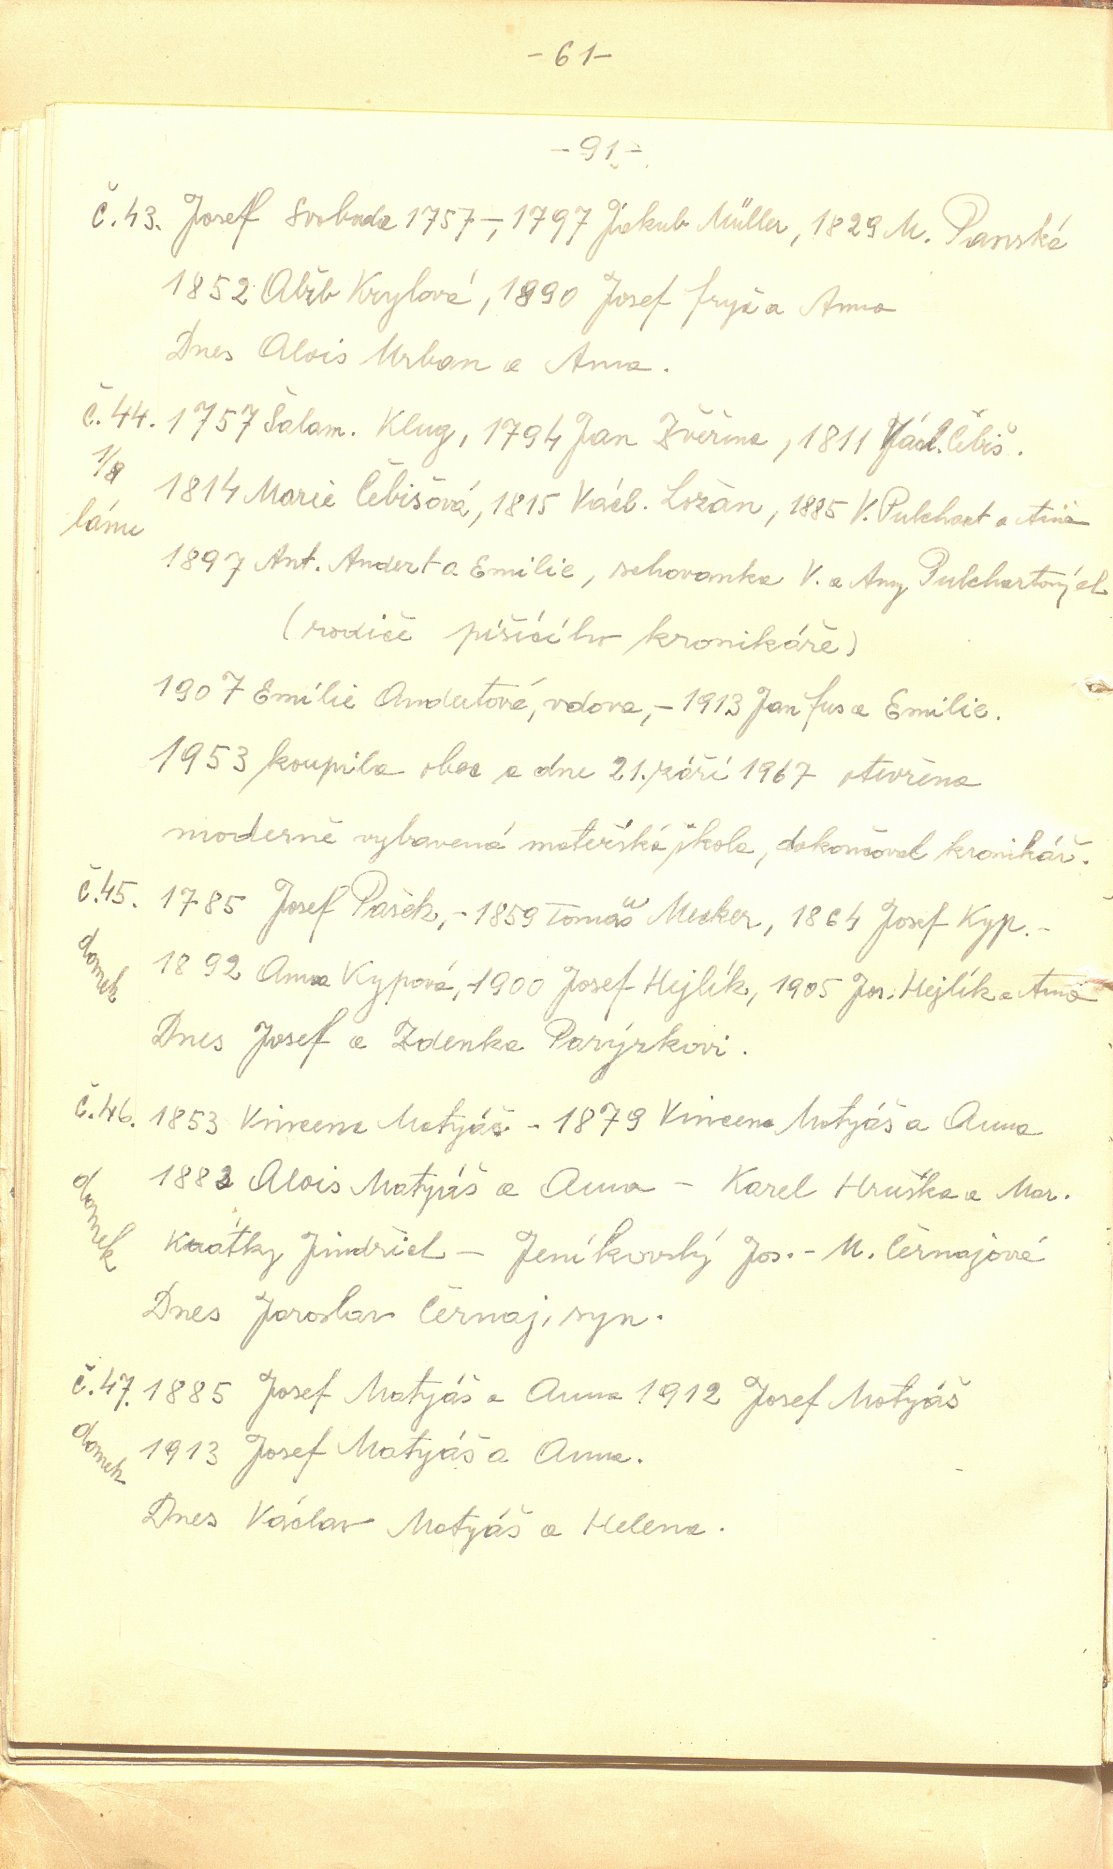 -61-
-91-
č.43. Josef Svoboda 1757-, 1797 Jakub Müller, 1829 M. Panská
1852 Alžb Krylová, 1890 Josef Fryč a Anna
Dnes Alois Urban a Anna.
č.44. 1757 Šalam. Klug, 1794 Jan Zvěřina, 1811 Václ. Čebiš.
1/8 1814 Marie Čebišová, 1815 Václ. Ložan, 1885 V. Pulchart a Anna
lánu
1897 Ant. Andert a Emilie, schovanka V. a Anny Pulchartových
(rodiče píšícího kronikáře)
1907 Emílie Andertová, vdova, - 1913 Jan Fus a Emilie.
1953 koupila obec a dne 21. září 1967 otevřena
moderně vybavená mateřská škola, dokončoval kronikář.
č.45. 1785 Josef Pašek, - 1859 Tomáš Mecker, 1864 Josef Kyp. -
domek 1892 Anna Kypová, -1900 Josef Hejlík, 1905 Jos. Hejlík a Anna
Dnes Josef a Zdenka Parýzkovi.
č.46. 1853 Vincenc Matyáš - 1879 Vincenc Matyáš a Anna
domek 1883 Alois Matyáš a Anna - Karel Hruška a Mar.
Krátky Jindřich - Jeníkovský Jos. - M. Černajová
Dnes Jaroslav Černaj, syn.
č.47. 1885 Josef Matyáš a Anna 1912 Josef Matyáš
domek 1913 Josef Matyáš a Anna.
Dnes Václav Matyáš a Helena.